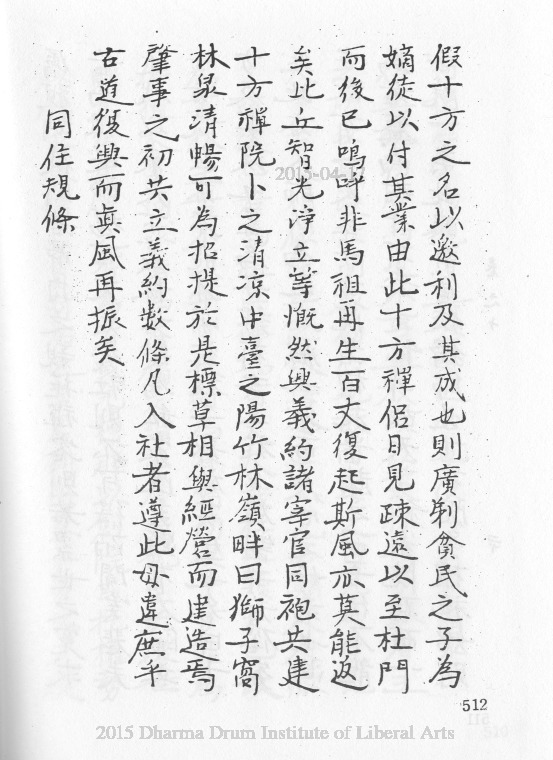 假十方之名以邀利及其成也則廣剃貧民之子為
嫡徒以付其業由此十方禪侶日見疎遠以至杜門
而後已嗚呼非馬祖再生百丈復起斯風亦莫能返
矣比丘智光淨立等慨然興義約諸宰官同袍共建
十方禪院卜之清凉中臺之陽竹林嶺畔曰獅子窩
林泉清暢可為招提於是標草相與經營而建造焉
肇事之初共立義約數條凡入社者遵此毋違庶乎
古道復興而真風再振矣
同住規條
512
2015 Dharma Drum Institute of Liberal Arts